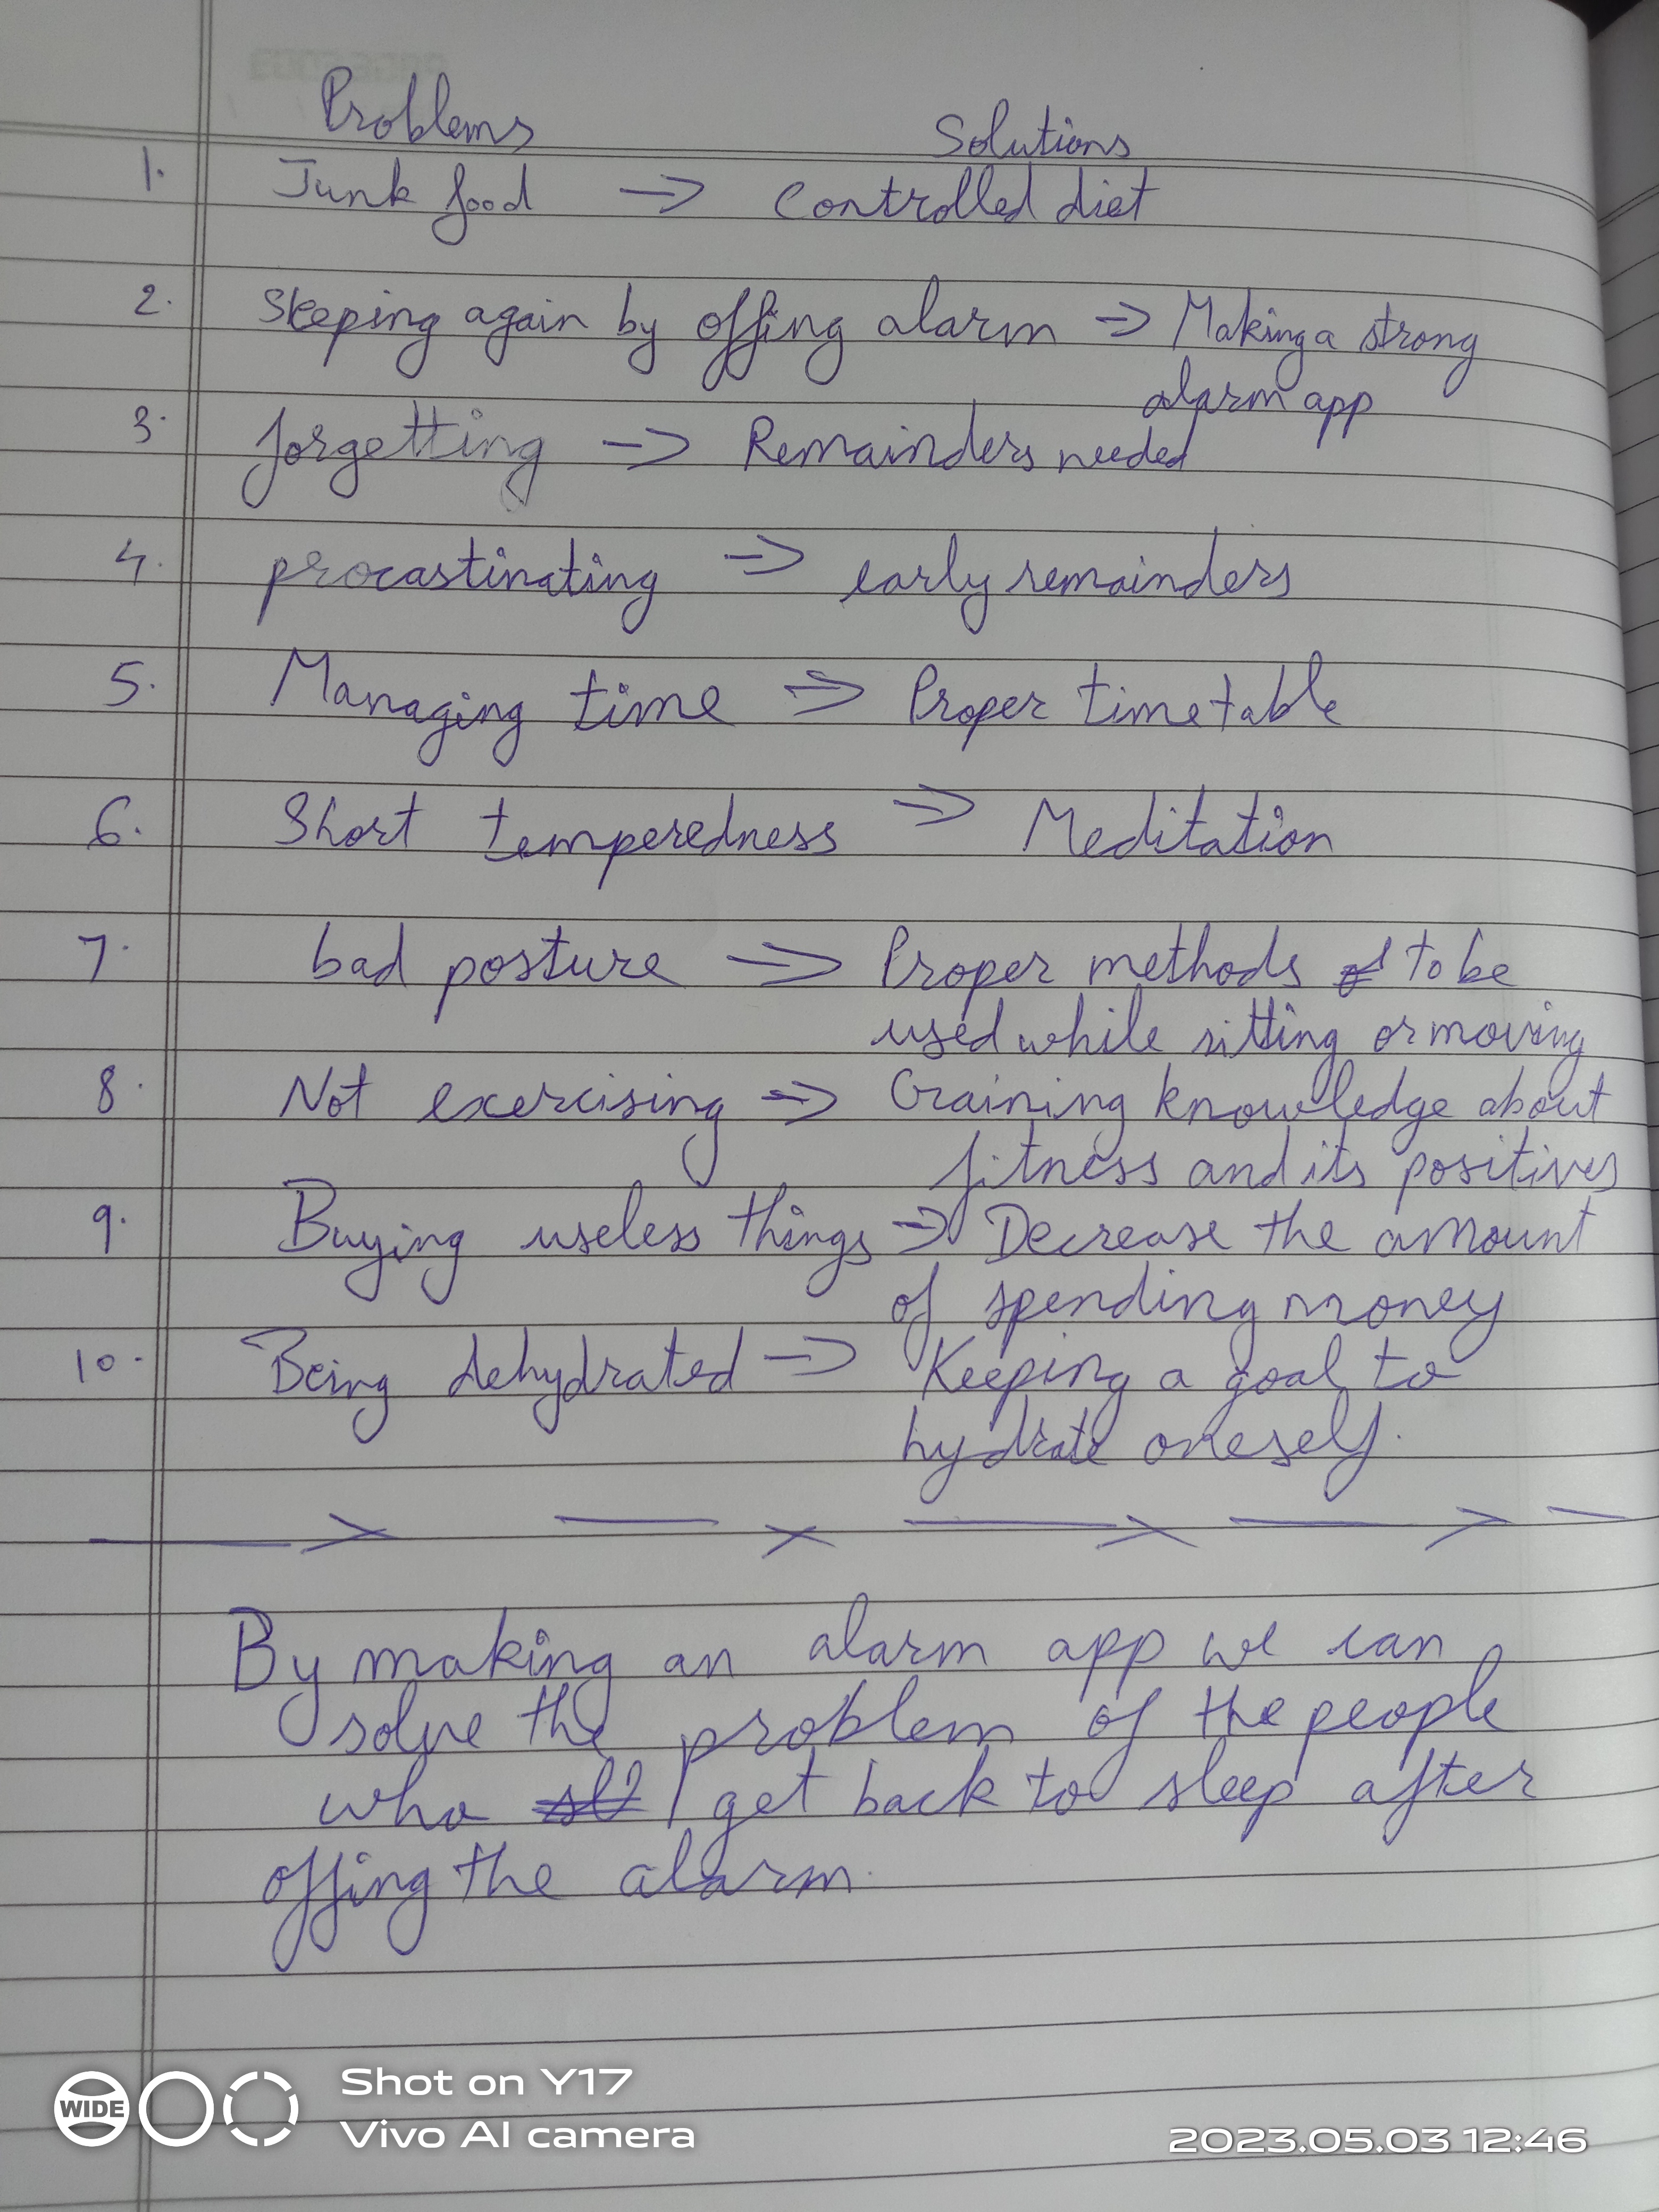 Problems Solutions
1. Junk food => Controlled diet
2. Sleeping again by offing alarm => Making a strong
alarm app
3. forgetting => Remainders needed
4. procastinating => early remainders
5. Managing time => Proper timetable
6. Short temperedness => Meditation
7. bad posture => Proper methods of to be
used while sitting or moving
8. Not exercising => Graining knowledge about
fitness and its positives
9. Buying useless things => Decrease the amount
of spending money
10. Being dehydrated => Keeping a goal to
hydrate oneself.
By making an alarm app we can
solve the problem of the people
who get back to sleep after
offing the alarm.
WIDE
Shot on Y17
Vivo AI camera
2023.05.03 12:46